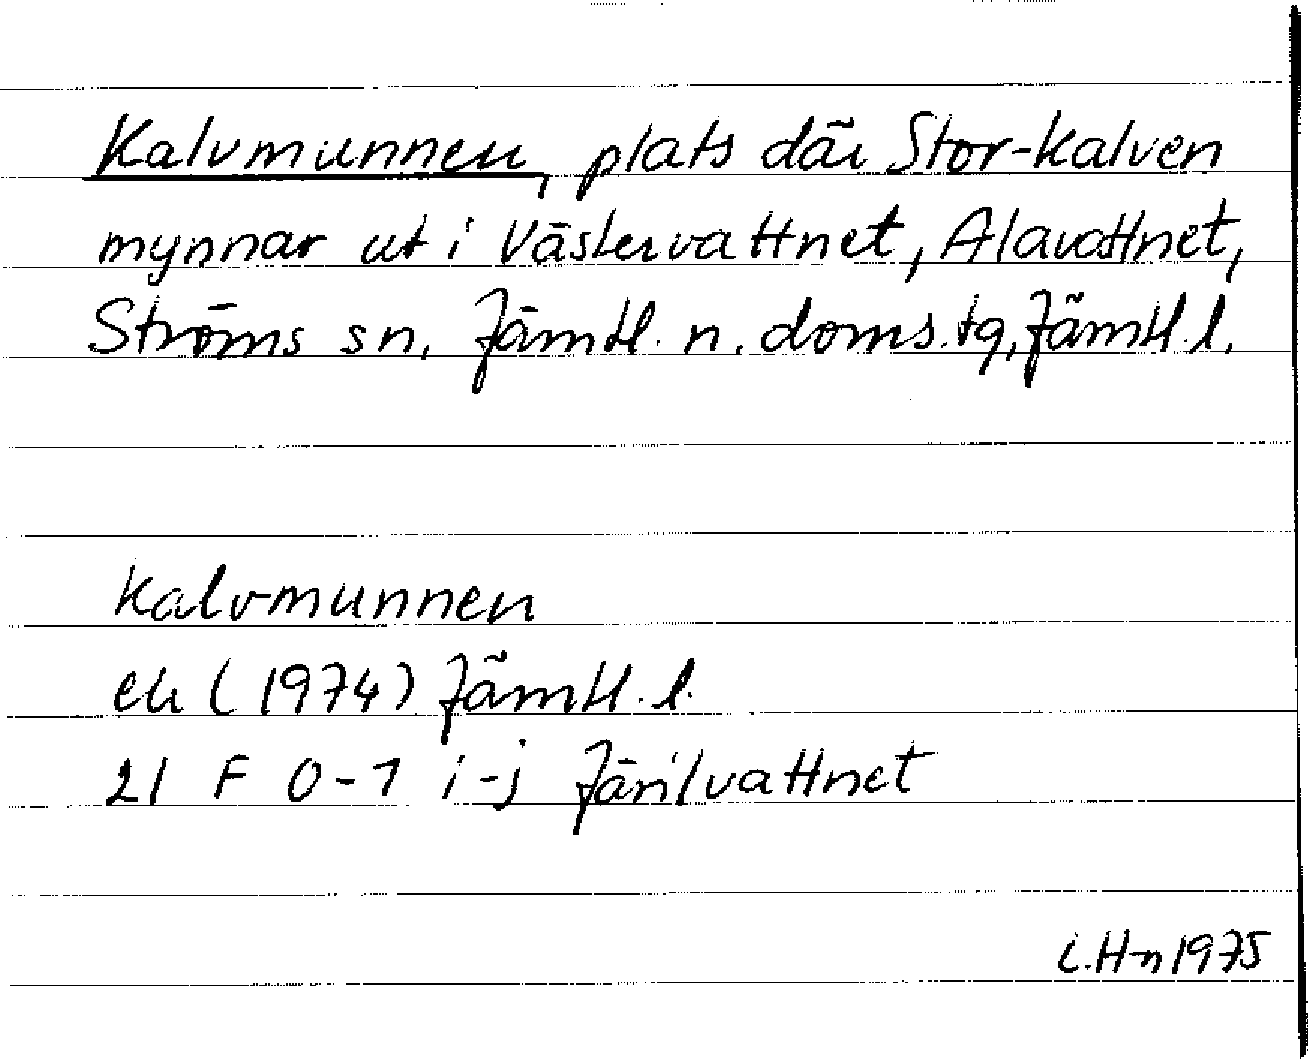 Kalvmunnen, plats där Stor-Kalven
mynnar ut i Västervattnet, Alavattnet,
Ströms sn, Jämtl. n. doms.tg, Jämtl.l.
Kalvmunnen
ek (1974) Jämtl.l.
21 F 0-1 i-j Järilvattnet
L.H-n 1975